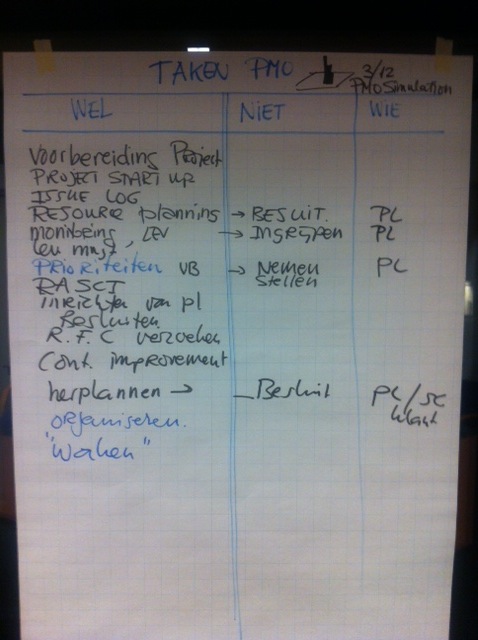 TAKEN PMO
3/12
PMO Simulation
WEL NIET WIE
Voorbereiding Project
PROJECT START UP
ISSUE LOG
RESOURCE planning → BESLUIT. PL
→ INGRIJPEN PL
PRIORITEITEN VB → Nemen PL
stellen
RASCI
inrichten van pl
Besluiten
R.F.C verzoeken
Cont. improvement
herplannen → Besluit PL/SC
klant
organiseren.
"Waken"